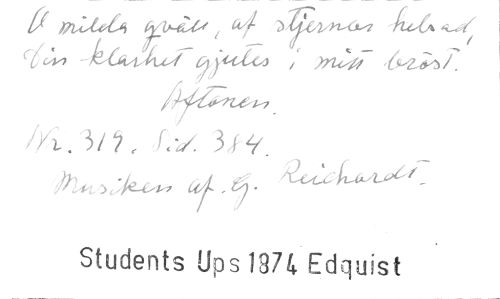 O milda qväll, af stjernor helsad,
Din klarhet gjutes i mitt bröst.
Aftonen.
Nr. 319. Sid. 384.
Musiken af G. Reichardt.
Students Ups 1874 Edquist